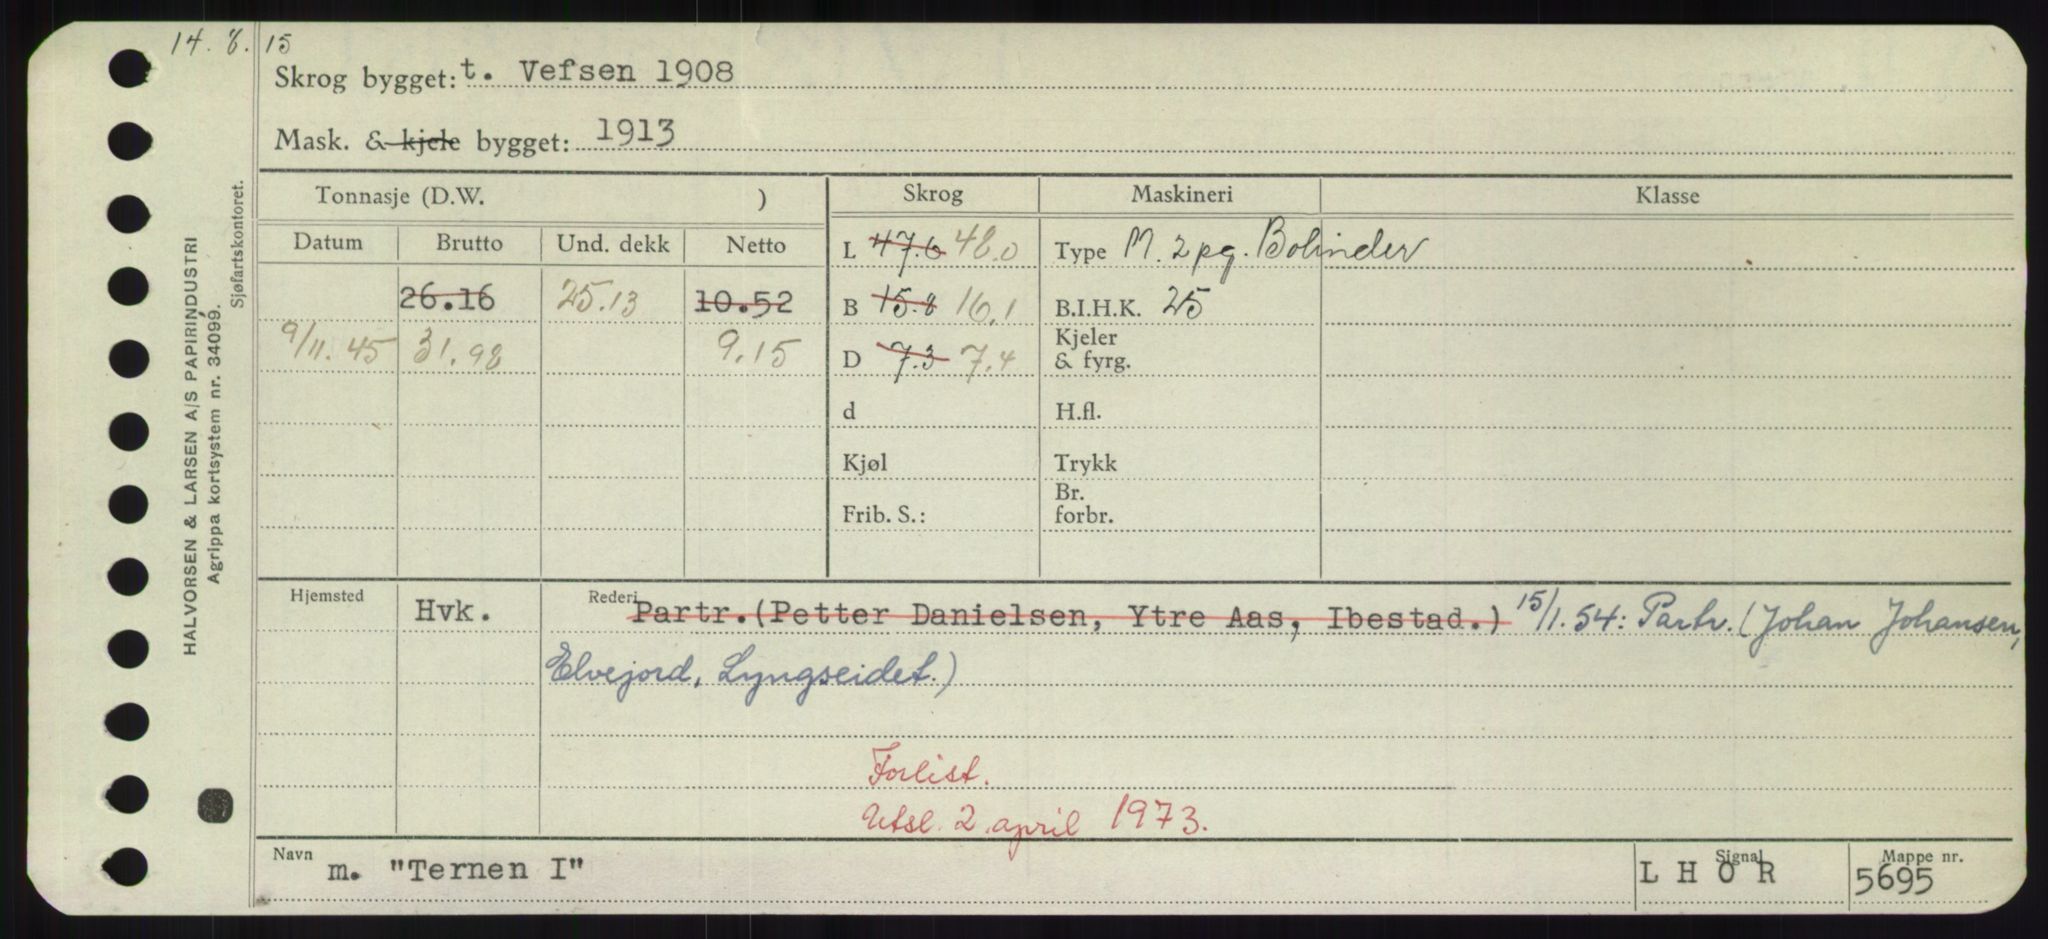 14. 8. 15
Skrog bygget: t. Vefsen 1908
Mask. & kjele bygget: 1913
HALVORSEN & LARSEN A/S PAPIRINDUSTRI
Agrippa kortsystem nr. 34099.
Sjøfartskontoret.
Tonnasje (D.W. ) Skrog Maskineri Klasse
Datum Brutto Und. dekk Netto
L 47.6 48.0 Type M. 2 pg. Bolinder
26.16 25.13 10.52 B 15.8 16.1 B.I.H.K. 25
9/11. 45 31.98 9.15 D 7.3 7.4 Kjeler
& fyrg.
d H.fl.
Kjøl Trykk
Br.
Frib. S.: forbr.
Hjemsted Hvk. Rederi Partr.(Petter Danielsen, Ytre Aas, Ibestad.) 15/1.54: Partr. (Johan Johansen,
Elvejord, Lyngseidet.)
Forlist.
Utsl. 2. april 1973.
Navn m. "Ternen I" Signal L H O R Mappe nr. 5695